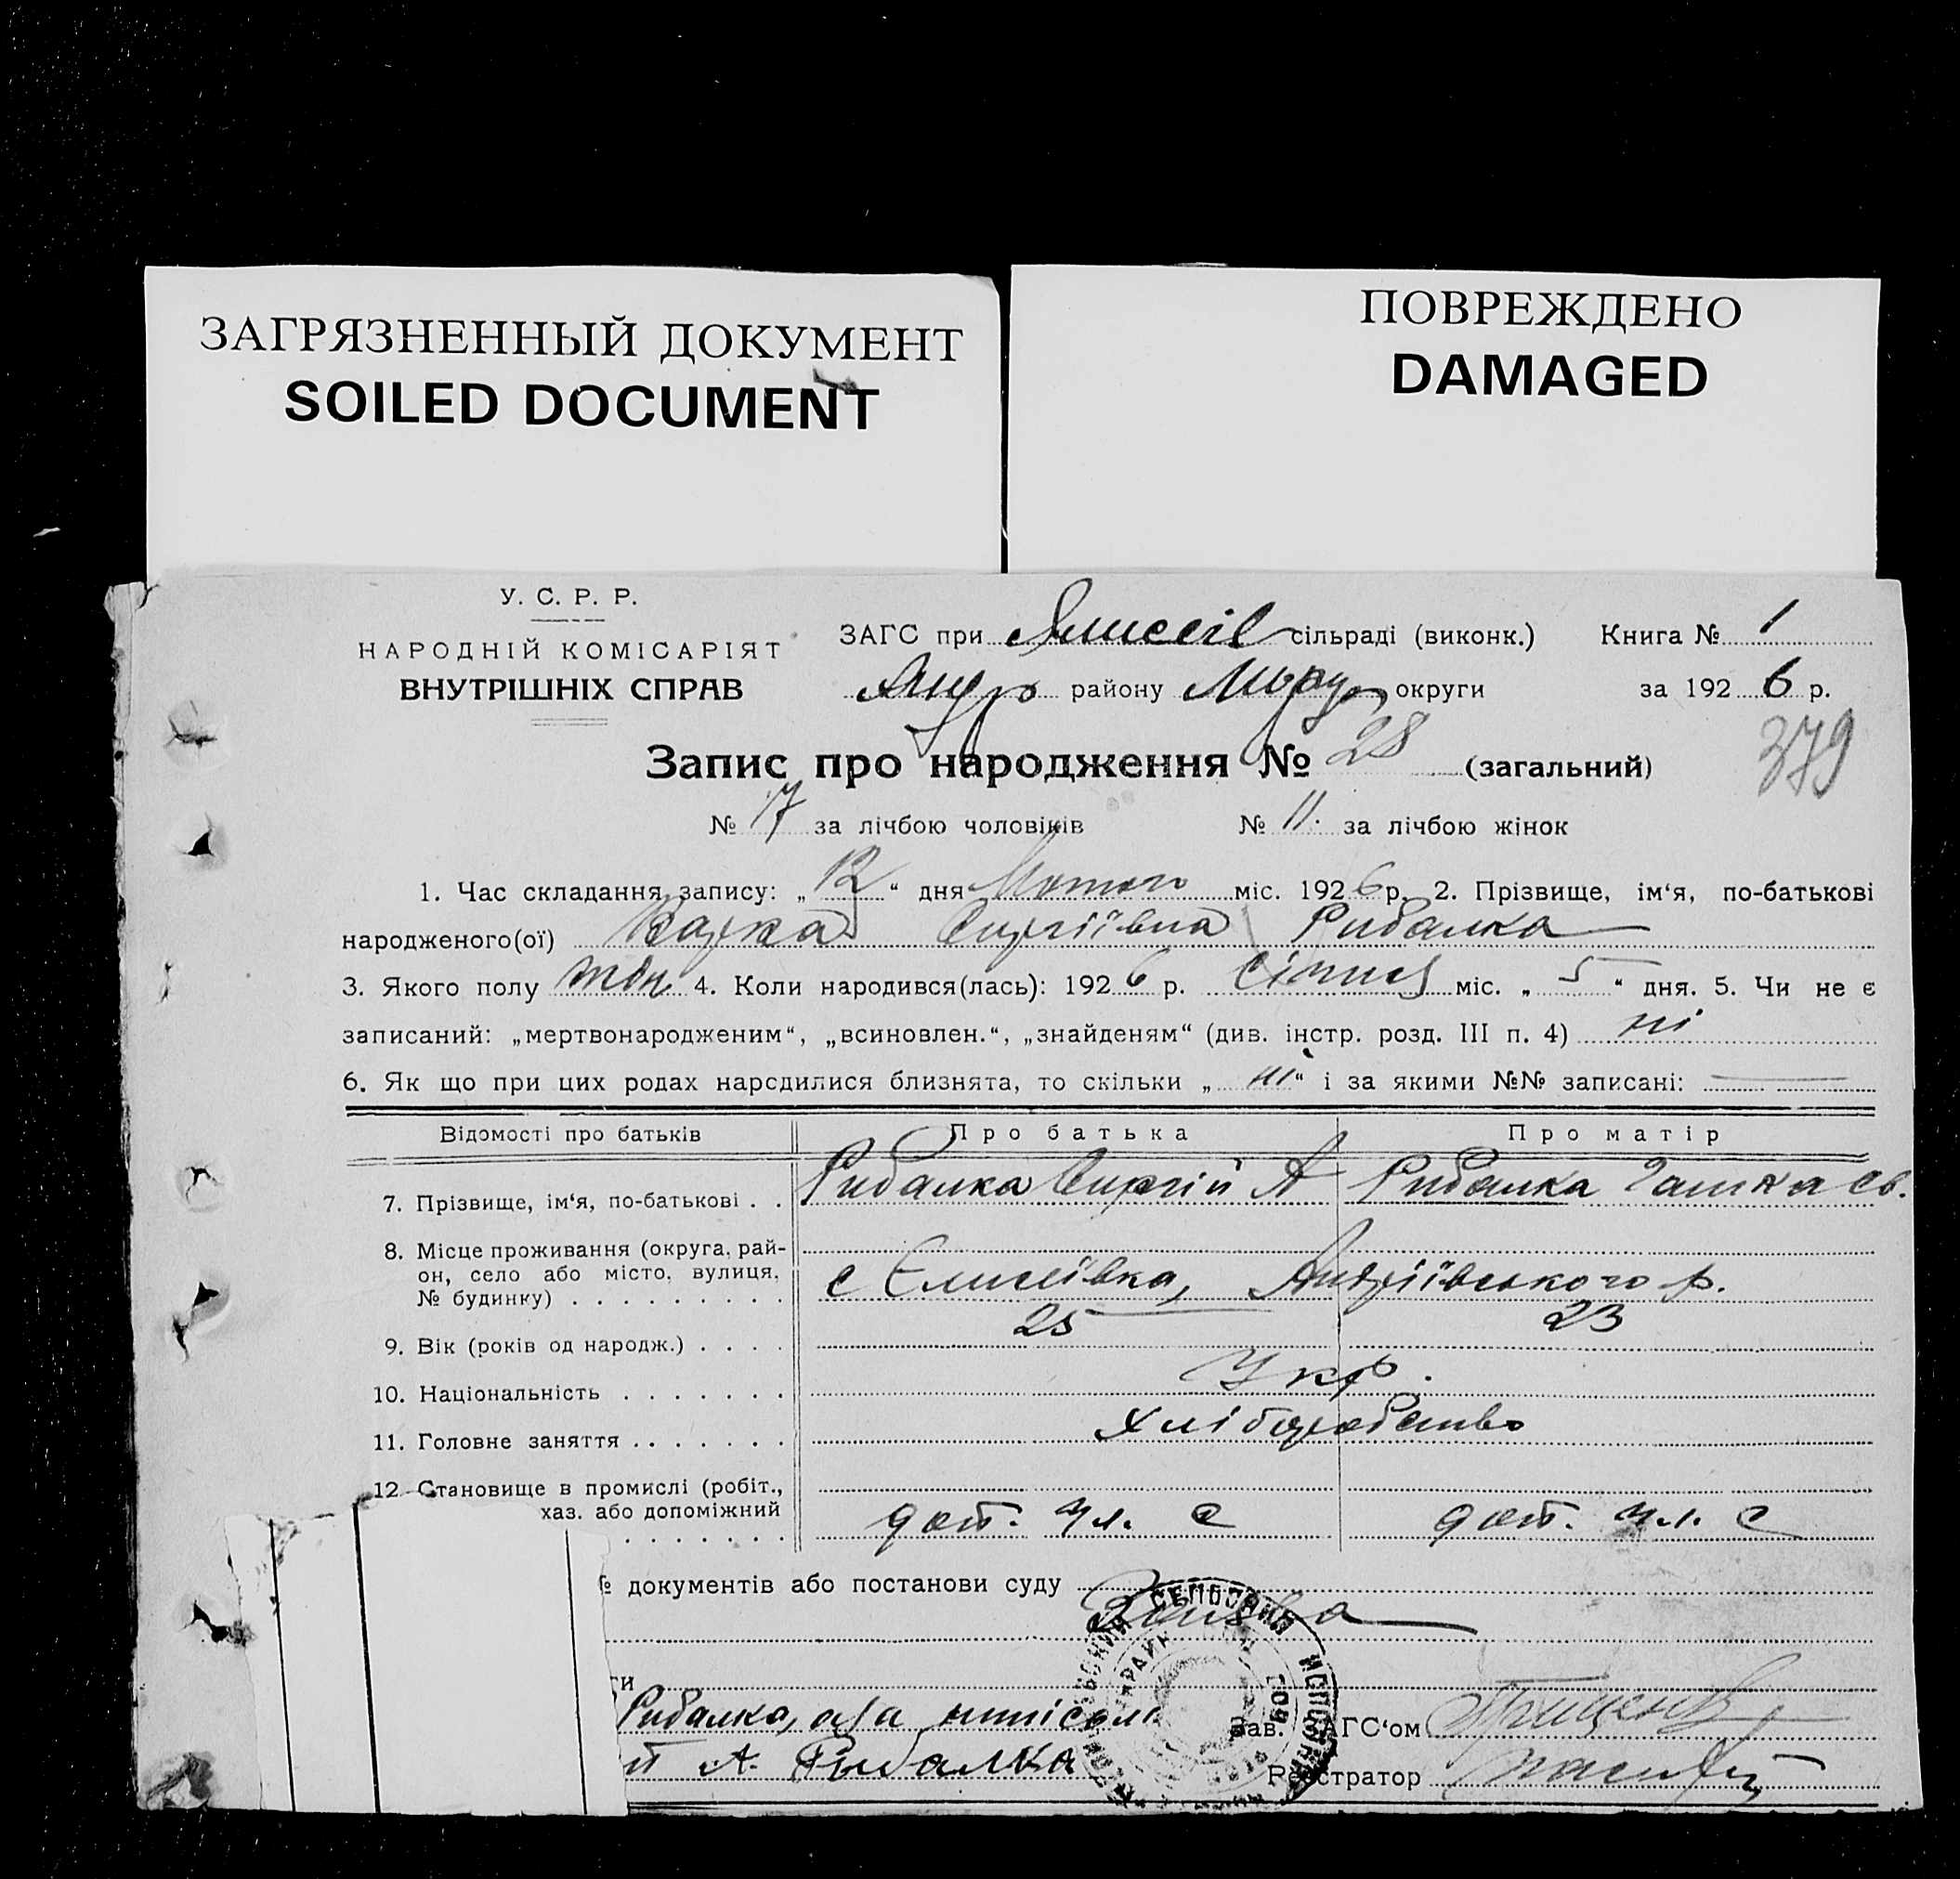 ЗАГРЯЗНЕННЫЙ ДОКУМЕНТ
SOILED DOCUMENT
ПОВРЕЖДЕНО
DAMAGED
У. С. Р. Р.
НАРОДНІЙ КОМІСАРІЯТ
ВНУТРІШНІХ СПРАВ
ЗАГС при сільраді (виконк.) Книга № 1
району округи за 192 6 р.
379
Запис про народження № 28 (загальний)
№ 17 за лічбою чоловіків № 11. за лічбою жінок
1. Час складання запису: „ 12 “ дня Лютого міс. 192 6 р. 2. Прізвище, ім‘я, по-батькові
народженого(ої) Варка Сиргіївна Рибалка
3. Якого полу жін 4. Коли народився(лась): 192 6 р. січня міс. „ 5 “ дня. 5. Чи не є
записаний: „мертвонародженим“, „всиновлен.“, „знайденям“ (див. інстр. розд. III п. 4) ні
6. Як що при цих родах народилися близнята, то скільки „ ні “ і за якими №№ записані:
Відомості про батьків Про батька Про матір
7. Прізвище, ім‘я, по-батькові . . Рибалка Сиргій А Рибалка Гашка Єв.
8. Місце проживання (округа, рай-
он, село або місто, вулиця,
№ будинку) . . . . . . . . . с Єлисеївка, Андріївського р.
9. Вік (років од народж.) . . . . 25 23
10. Національність . . . . . . . Укр.
11. Головне заняття . . . . . . . хліборобство
12 Становище в промислі (робіт.,
хаз. або допоміжний
. . . . . . . доп. чл. с доп. чл. с
№ документів або постанови суду
Заява
ти
Рибалка, а/а
Зав. ЗАГС‘ом
й А. Рыбалка
Реєстратор